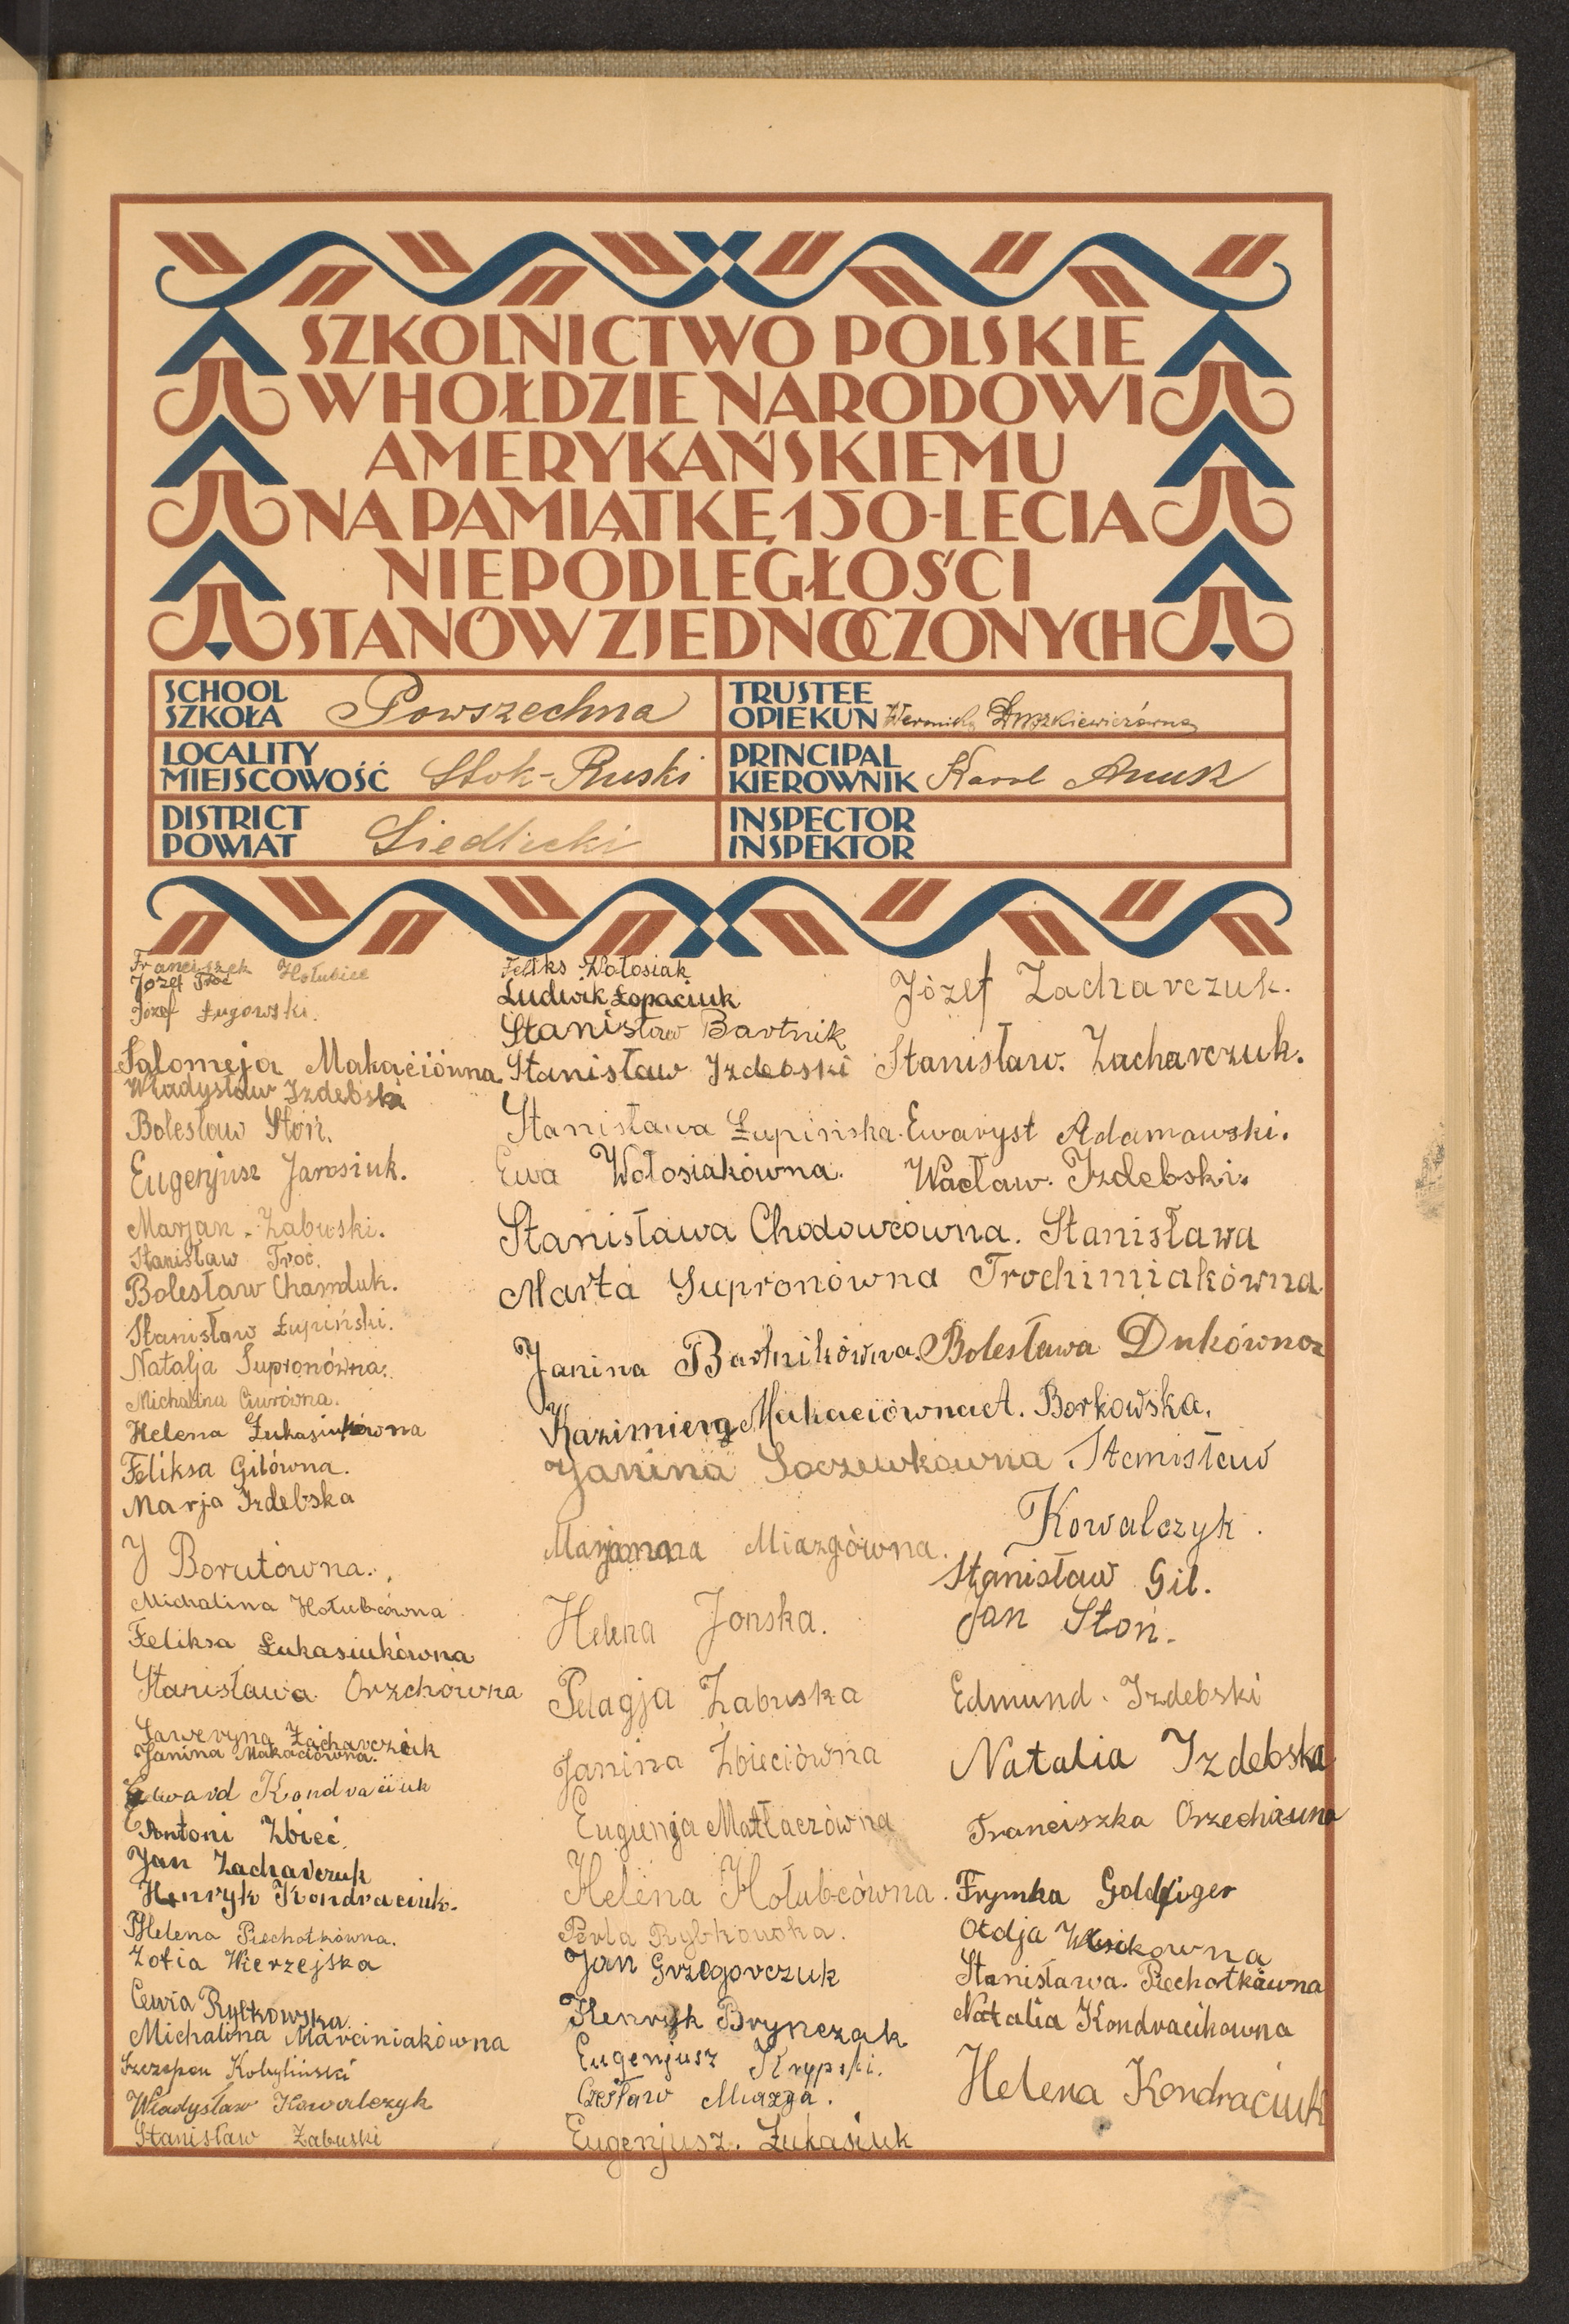 SZKOLNICTWO POLSKIE
W HOŁDZIE NARODOWI
AMERYKAŃSKIEMU
NA PAMIĄTKĘ 150-LECIA
NIEPODLEGŁOŚCI
STANÓW ZJEDNOCZONYCH
SCHOOL
SZKOŁA Powszechna
TRUSTEE
OPIEKUN
LOCALITY
MIEJSCOWOŚĆ Stok-Ruski
PRINCIPAL
KIEROWNIK Karol Anusz
DISTRICT
POWIAT Siedlecki
INSPECTOR
INSPEKTOR
Franciszek Hołubiec
Józef Troć
Józef Ługowski.
Salomeja Makaciówna.
Władysław Izdebski
Bolesław Słoń.
Eugenjusz Jarosiuk.
Marjan Zabuski.
Stanisław Troć.
Bolesław Chomduk.
Stanisław Łupiński.
Natalja Supronówna.
Michalina Ciurówna.
Helena Łukasiukówna
Feliksa Gilówna.
Marja Izdebska
J Borutówna.
Michalina Hołubcówna
Feliksa Łukasiukówna
Stanisława Orzchówna
Saweryna Zacharczuk
Janina Makaciówna.
Edward Kondraciuk
Antoni Zbieć.
Jan Zacharczuk
Henryk Kondraciuk.
Helena Piechotkówna.
Zofia Wierzejska
Cewia Rybkowska.
Michalina Marciniakówna
Szczepan Kobyliński
Władysław Kowalczyk
Stanisław Zabuski
Feliks Wołosiak
Ludwik Łopaciuk
Stanisław Bartnik
Stanisław Izdebski
Stanisława Łupińska.
Ewa Wołosiakówna.
Stanisława Chodowcówna.
Marta Supronówna
Janina Bartnikówna.
Kazimiera Makaciówna
Janina Soczewkówna
Marjanna Miazgówna.
Helena Jonska.
Pelagja Zabuska
Janina Zbieciówna
Eugienja Matłaczówna
Helena Hołubcówna.
Perla Rybkowska.
Jan Grzegorczuk
Henryk Brynczak
Eugenjusz Krypski.
Czesław Miazga.
Eugenjusz. Łukasiuk
Józef Zacharczuk.
Stanisław. Zacharczuk.
Ewaryst Adamowski.
Wacław. Izdebski.
Stanisława
Trochimiakówna
Bolesława Dukówna
A. Borkowska.
Stanisław
Kowalczyk.
Stanisław Gil.
Jan Słoń.
Edmund. Izdebski
Natalia Izdebska
Franciszka Orzechówna
Frymka Goldfiger
Stanisława. Piechotkówna
Natalia Kondracikowna
Helena Kondraciuk